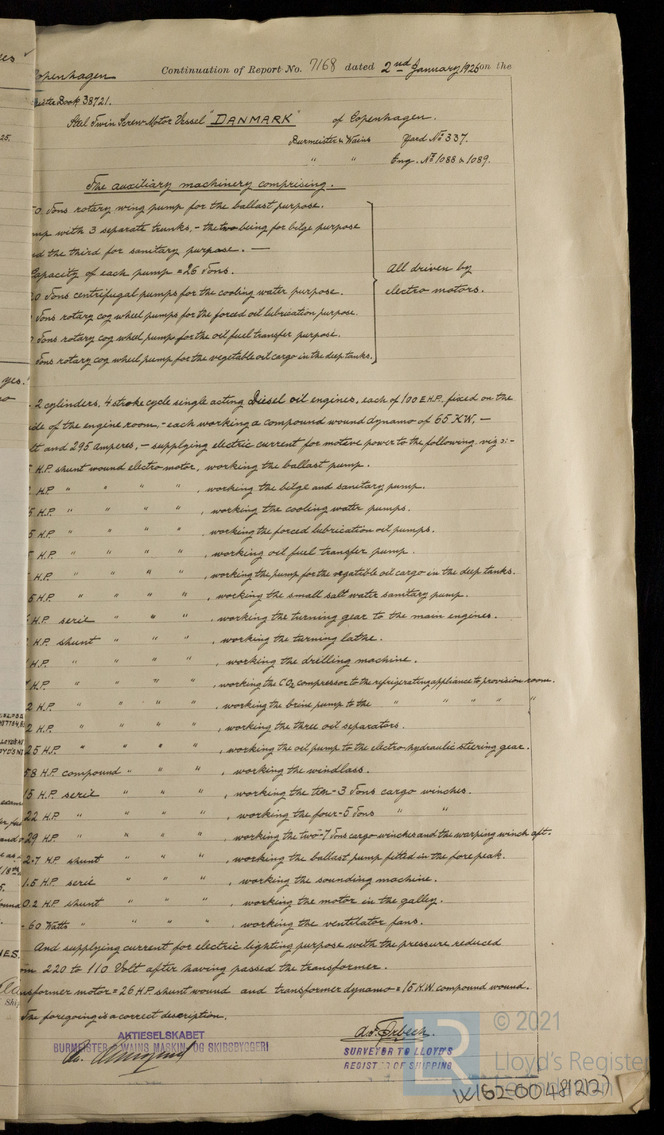 Copenhagen Continuation of Report No. 7168 dated 2nd January 1926 on the
Register Book 38721.
Steel Twin Screw Motor Vessel "DANMARK" of Copenhagen.
Burmeister & Wains Yard No 337.
" " Eng. No 1088 & 1089.
The auxiliary machinery comprising.
0 Tons rotary wing pump for the ballast purpose.
mp with 3 separate trunks, - the two being for bilge purpose
nd the third for sanitary purpose. —
Capacity of each pump = 26 Tons.
0 Tons centrifugal pumps for the cooling water purpose.
Tons rotary cog wheel pumps for the forced oil lubrication purpose.
Tons rotary cog wheel pump for the oil fuel transfer purpose.
Tons rotary cog wheel pump for the vegetable oil cargo in the deep tanks.
All driven by
electro motors.
2 cylinders, 4 stroke cycle single acting Diesel oil engines, each of 100 E.H.P. fixed on the
ide of the engine room, - each working a compound wound dynamo of 65 KW, —
lt and 295 amperes, - supplying electric current for motive power to the following viz:-
H.P. shunt wound electro motor, working the ballast pump.
H.P. " " " " , working the bilge and sanitary pump.
5 H.P. " " " " , working the cooling water pumps.
5 H.P. " " " " , working the forced lubrication oil pumps.
H.P. " " " " , working oil fuel transfer pump.
H.P. " " " " , working the pump for the vegatible oil cargo in the deep tanks.
5 H.P. " " " " , working the small salt water sanitary pump.
H.P. serie " " " , working the turning gear to the main engines.
H.P. shunt " " " , working the turning lathe.
H.P. " " " " , working the drilling machine.
H.P. " " " " , working the CO2 compressor to the refrigerating appliance to provision room.
2 H.P. " " " " , working the brine pump to the " " " " "
2 H.P. " " " " , working the three oil separators.
25 H.P. " " " " , working the oil pump to the electro-hydraulic steering gear.
58 H.P. compound " " " , working the windlass.
15 H.P. serie " " " , working the ten - 3 Tons cargo winches.
22 H.P. " " " " , working the four - 5 Tons " "
29 H.P. " " " " , working the two - 7 Tons cargo winches and the warping winch aft.
2.7 H.P. shunt " " " , working the ballast pump fitted in the fore peak.
1.5 H.P. serie " " " , working the sounding machine.
0.2 H.P. shunt " " " , working the motor in the galley.
60 Watts " " " " , working the ventilator fans.
And supplying current for electric lighting purpose with the pressure reduced
om 220 to 110 Volt after having passed the transformer.
nsformer motor = 26 H.P. shunt wound and transformer dynamo = 15 K.W. compound wound.
The foregoing is a correct description.
AKTIESELSKABET
BURMEISTER & WAINS MASKIN- OG SKIBSBYGGERI
SURVEYOR TO LLOYD'S
REGISTER OF SHIPPING
© 2021
Lloyd's Register
W162-0048(2/2)